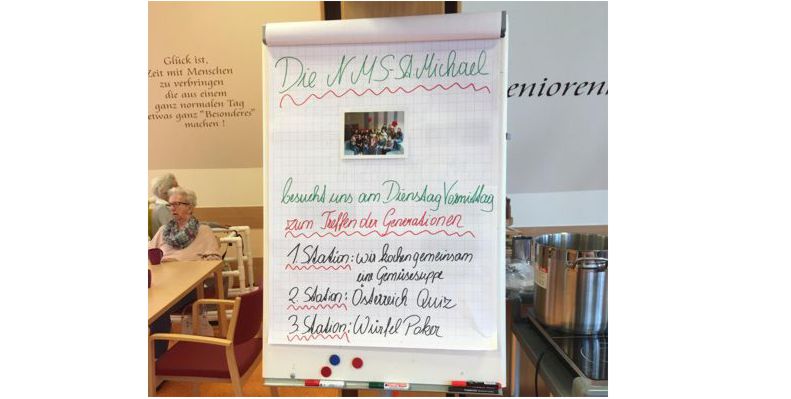 Glück ist,
Zeit mit Menschen
zu verbringen
die aus einem
ganz normalen Tag
etwas ganz "Besonderes"
machen !
Die NMS-St.Michael
besucht uns am Dienstag Vormittag
zum Treffen der Generationen
1.Station: wir kochen gemeinsam
eine Gemüsesuppe
2. Station: Österreich Quiz
3.Station: Würfel Poker